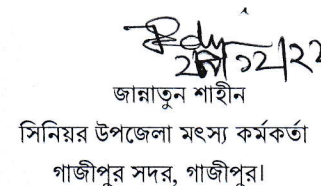 জান্নাতুন শাহীন
সিনিয়র উপজেলা মৎস্য কর্মকর্তা
গাজীপুর সদর, গাজীপুর।